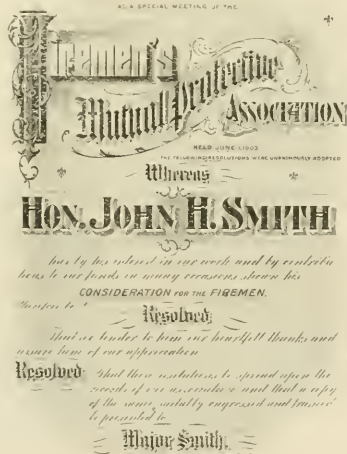 AT A SPECIAL MEETING OF THE
Firemen's
Mutual Protective
ASSOCIATION
HELD JUNE 1, 1903
THE FOLLOWING RESOLUTIONS WERE UNANIMOUSLY ADOPTED
Whereas
HON. JOHN H. SMITH
has by his interest in our work and by contribu
tions to our funds on many occasions shown his
CONSIDERATION FOR THE FIREMEN.
Therefore be it
Resolved,
That we tender to him our heartfelt thanks and
assure him of our appreciation
Resolved That these resolutions be spread upon the
records of our association and that a copy
of the same suitably engrossed and framed
be presented to
Major Smith.